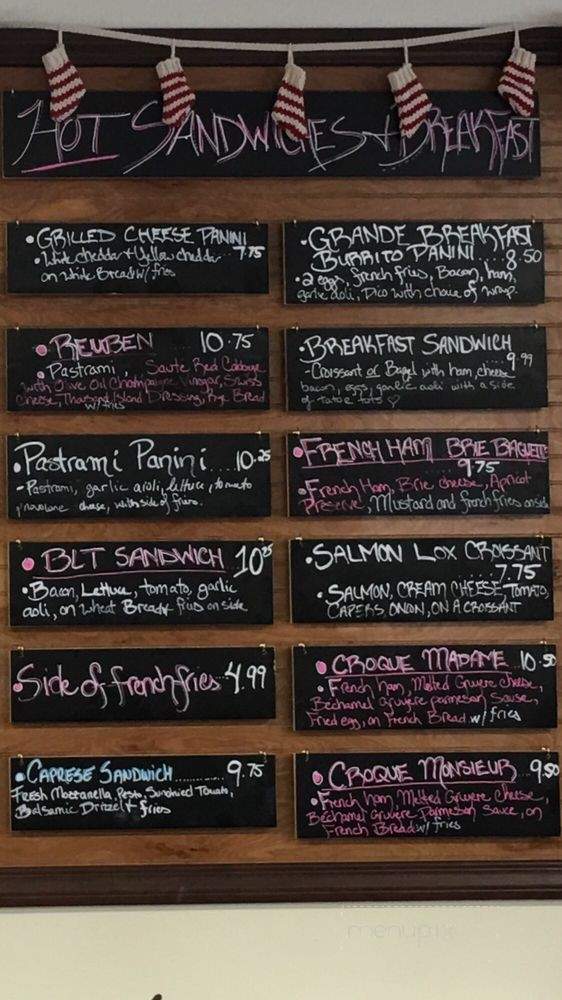 HOT SANDWICHES + BREAKFAST
• GRILLED CHEESE PANINI
• White cheddar + Yellow cheddar 7.75
on White Bread w/ fries
• REUBEN 10.75
• Pastrami, Saute Red Cabbage
with Olive Oil Champaigne Vinegar, Swiss
Cheese, Thousand Island Dressing, Rye Bread
w/ fries
• Pastrami Panini 10.25
- Pastrami, garlic aioli, lettuce, tomato
provolone cheese, with side of fries.
• BLT SANDWICH 10.25
• Bacon, Lettuce, tomato, garlic
aoli, on wheat Bread fries on side
• Side of french fries 4.99
• CAPRESE SANDWICH............ 9.75
FRESH Mozzanella, Pesto, Sundried Tomato,
Balsamic Drizel + fries
• GRANDE BREAKFAST
BURRITO PANINI....8.50
• 2 eggs, french fries, Bacon, ham,
garlic aoli, Pico with choice of wrap.
• BREAKFAST SANDWICH
- Croissant or Bagel with ham cheese 9.99
bacon, eggs, garlic aoli with a side
of tator tots ♡
• FRENCH HAM BRIE BAGUETTE
9.75
• French Ham, Brie cheese, Apricot
Preserve, Mustard and french fries on side
• SALMON LOX CROISSANT
7.75
• SALMON, CREAM CHEESE, TOMATO,
CAPERS ONION, ON A CROISSANT
• CROQUE MADAME 10.50
• French ham, Melted Gruyere cheese,
Bechamel gruyere parmesan Sause,
fried egg, on French Bread w/ fries
• CROQUE MONSIEUR 9.50
• French ham, Melted Gruyere Cheese,
Bechamel Gruyere Parmesan Sauce, on
French Bread w/ fries